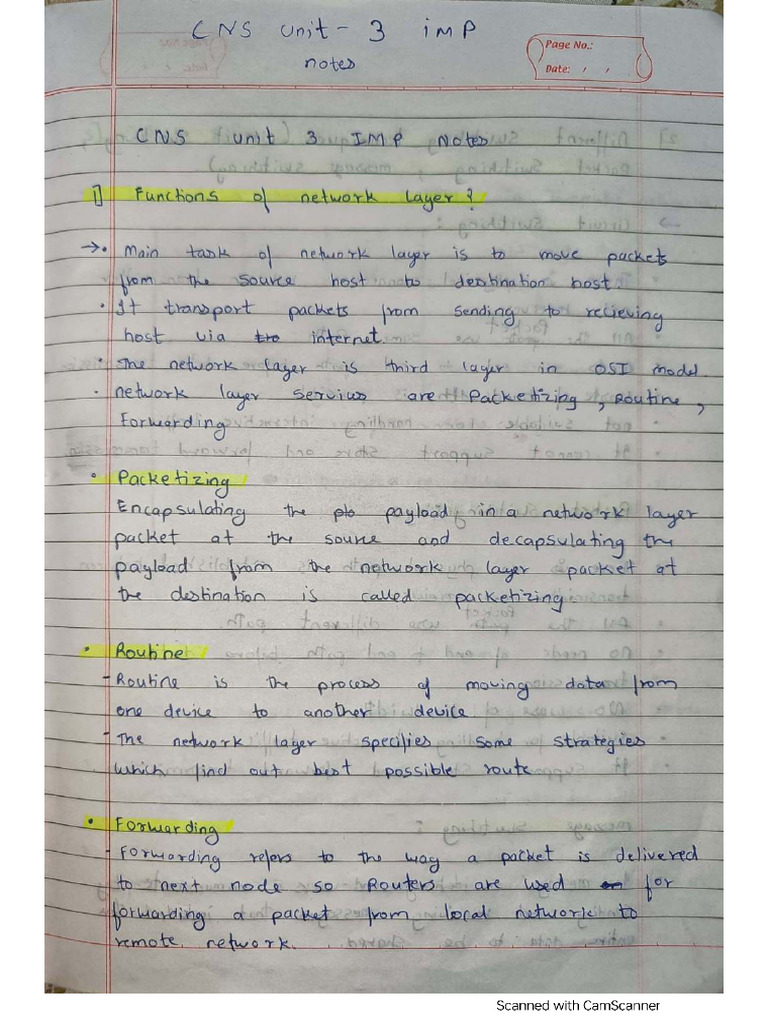 CNS unit - 3 imp
notes
Page No.:
Date: / /
CNS unit 3 IMP Notes
1] Functions of network layer?
→ • Main task of network layer is to move packets
from the source host to destination host.
• It transport packets from sending to recieving
host via internet.
• The network layer is third layer in OSI model
• network layer services are Packetizing, Routine,
Forwarding
• Packetizing
Encapsulating the payload in a network layer
packet at the source and decapsulating the
payload from the network layer packet at
the destination is called packetizing
• Routine
- Routine is the process of moving data from
one device to another device
- The network layer specifies some strategies
which find out best possible route
• Forwarding
- Forwarding refers to the way a packet is delivered
to next node so Routers are used for
forwarding a packet from local network to
remote network.
Scanned with CamScanner